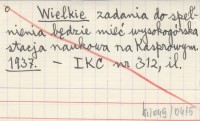 Wielkie zadania do speł-
nienia będzie mieć wysokogórska
stacja naukowa na Kasprowym.
1937. - IKC nr 312, il.